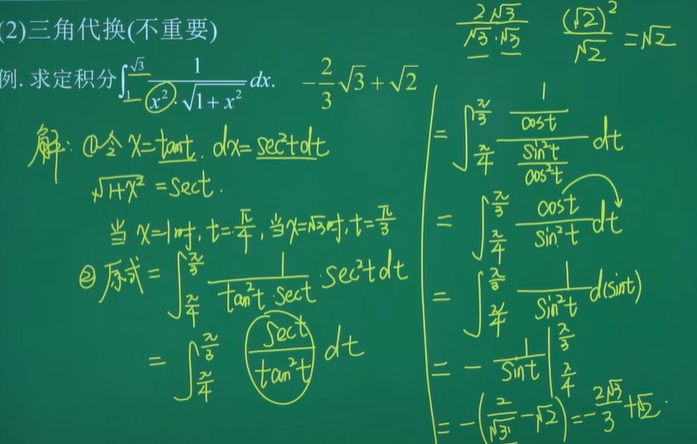 (2)三角代换(不重要)
例. 求定积分∫₁^√3 1/(x²·√(1+x²)) dx. -2/3 √3+√2
解: ①令 x=tant. dx=sec²t dt
√(1+x²) =sect.
当 x=1时, t=π/4, 当x=√3时, t=π/3
②原式 = ∫_{π/4}^{π/3} 1/(tan²t·sect)·sec²t dt
= ∫_{π/4}^{π/3} sect/tan²t dt
2√3/(√3·√3) (√2)²/√2 =√2
= ∫_{π/4}^{π/3} (1/cost)/(sin²t/cos²t) dt
= ∫_{π/4}^{π/3} cost/sin²t dt
= ∫_{π/4}^{π/3} 1/sin²t d(sint)
= - 1/sint |_{π/4}^{π/3}
= -(2/√3 -√2) = -2√3/3 +√2.